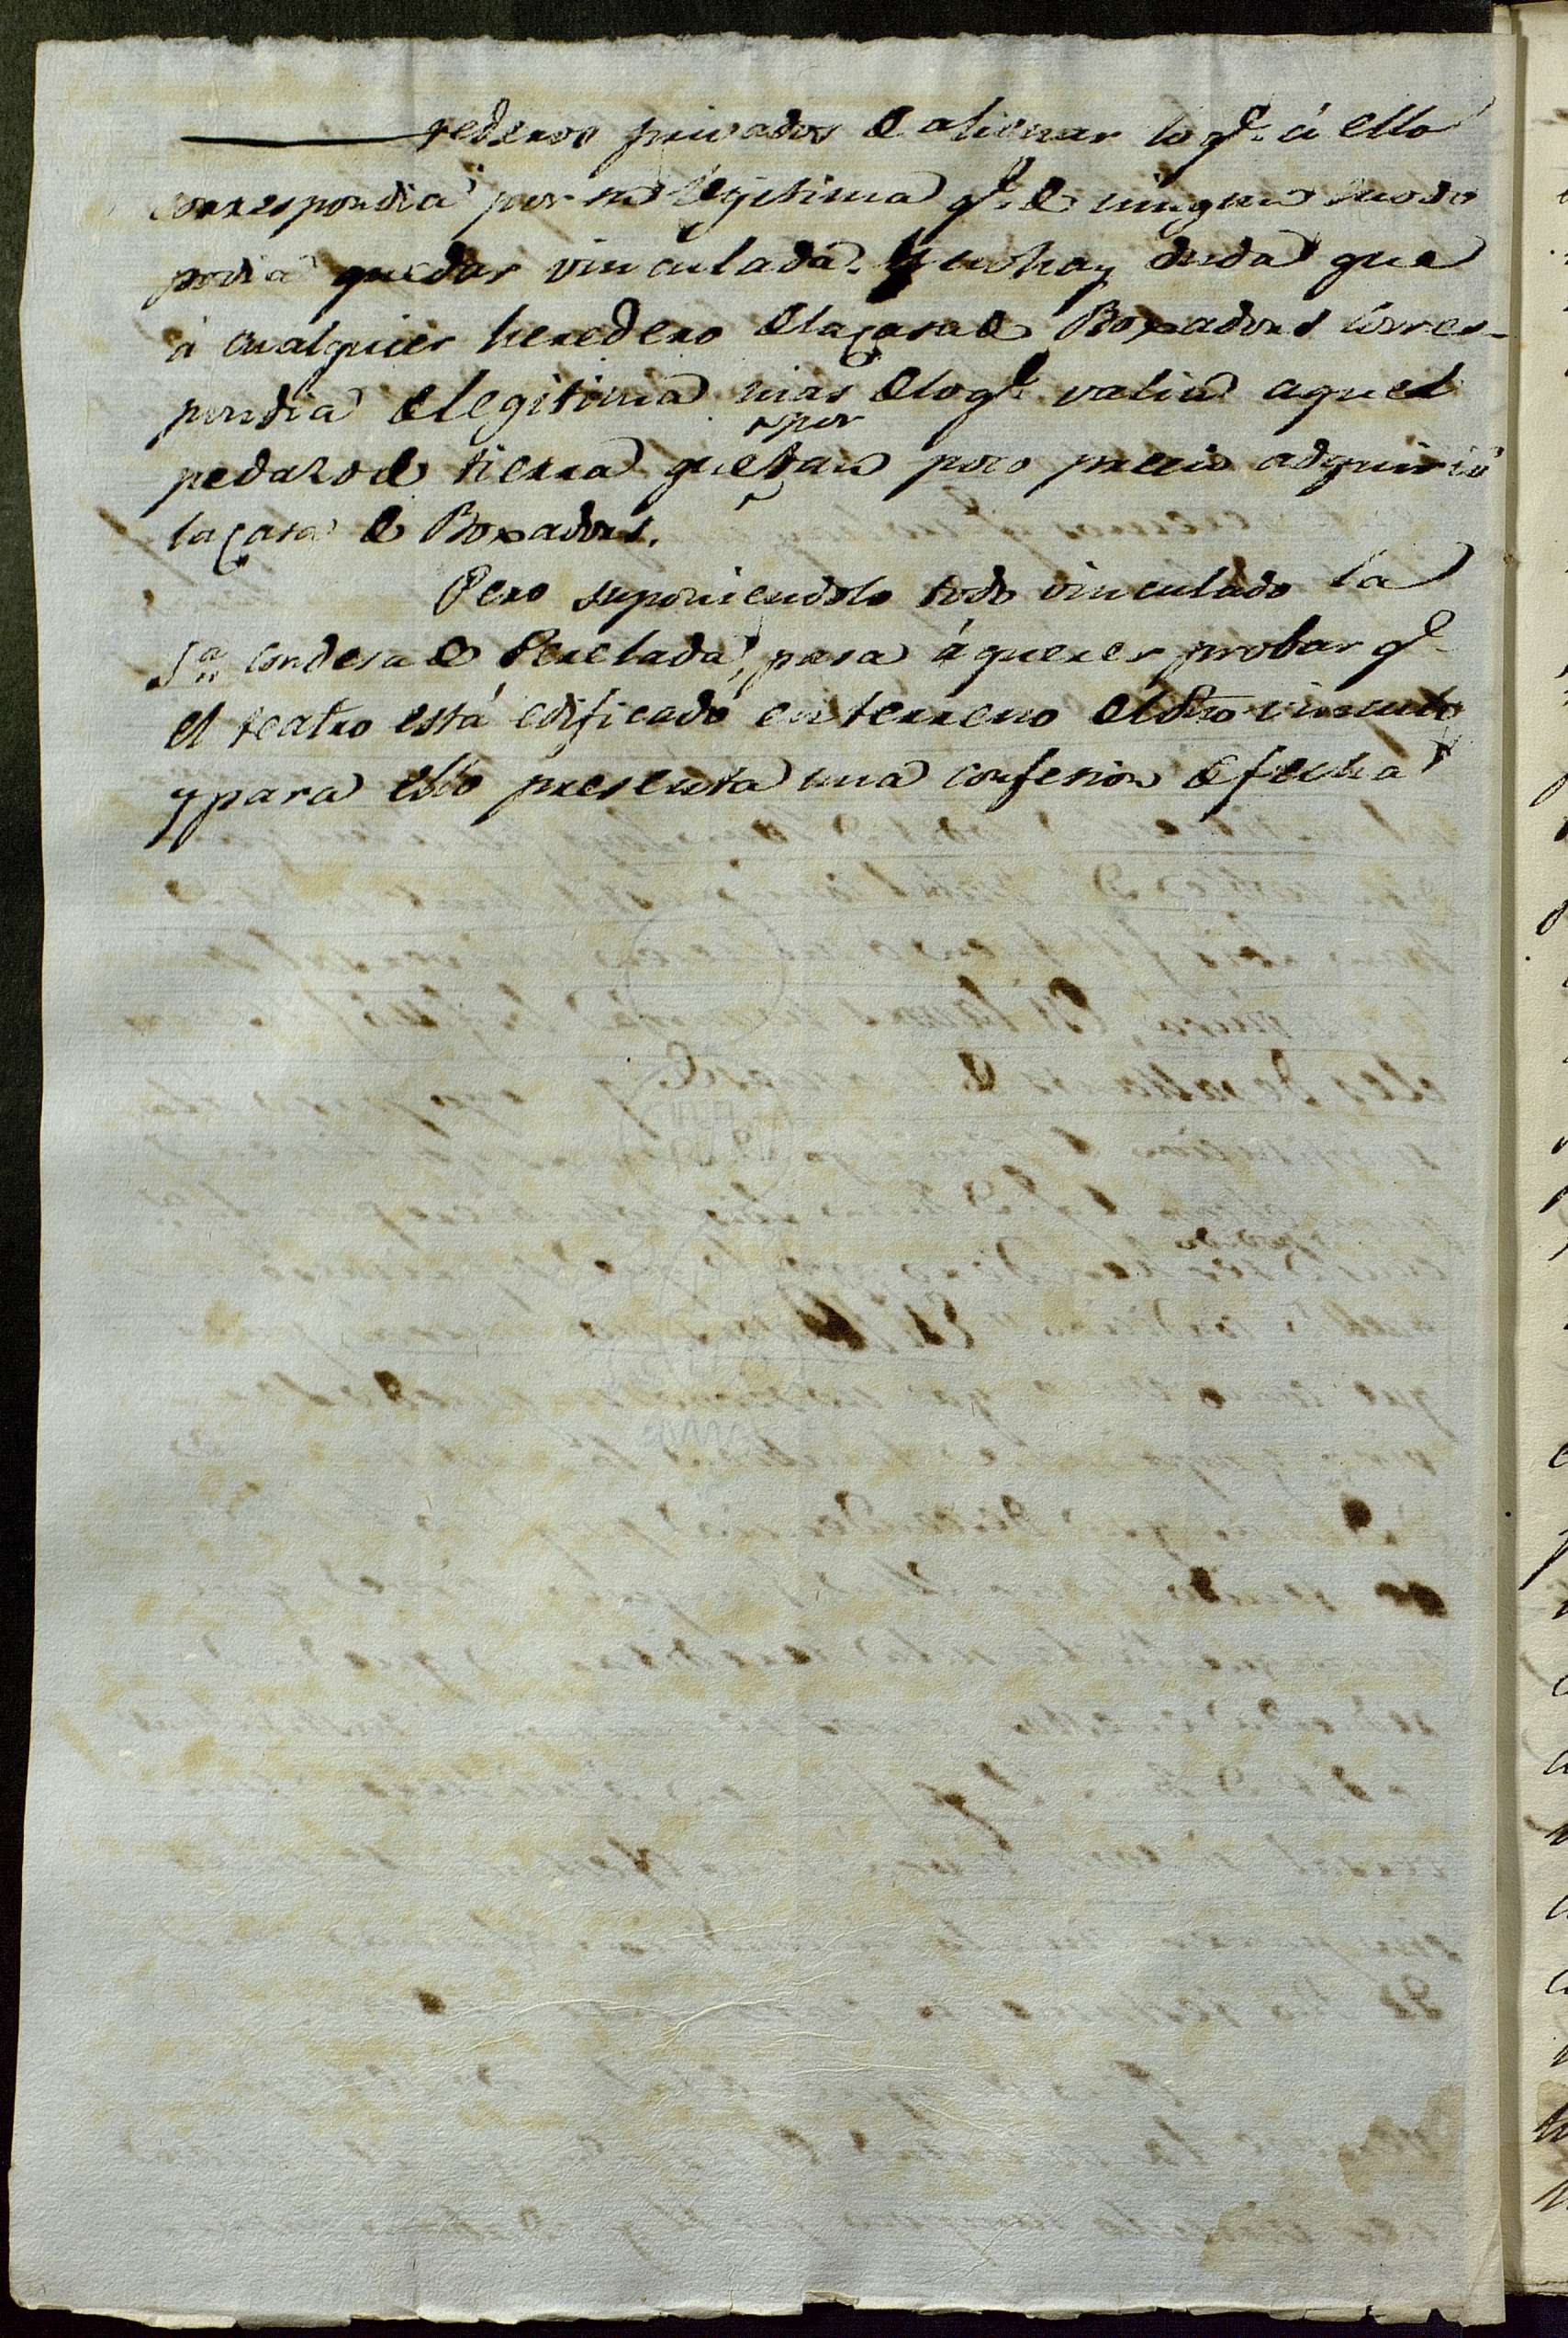 rederos privados de alienar lo q.e á ella
correspondia por su legitima q.e de ningun modo
podia quedar vinculada. Y no hay duda que
á cualquier heredero de la Casa de Boxadors corres-
pondia de legitima mas de lo q.e valia aquel
pedazo de tierra que por tan poco precio adquirió
la Casa de Boxadors.
Pero suponiendolo todo vinculado la
S.ra Condesa de Perelada, pasa á querer probar q.e
el teatro está edificado en terreno del dho vinculo
y para ello presenta una confesion de fecha